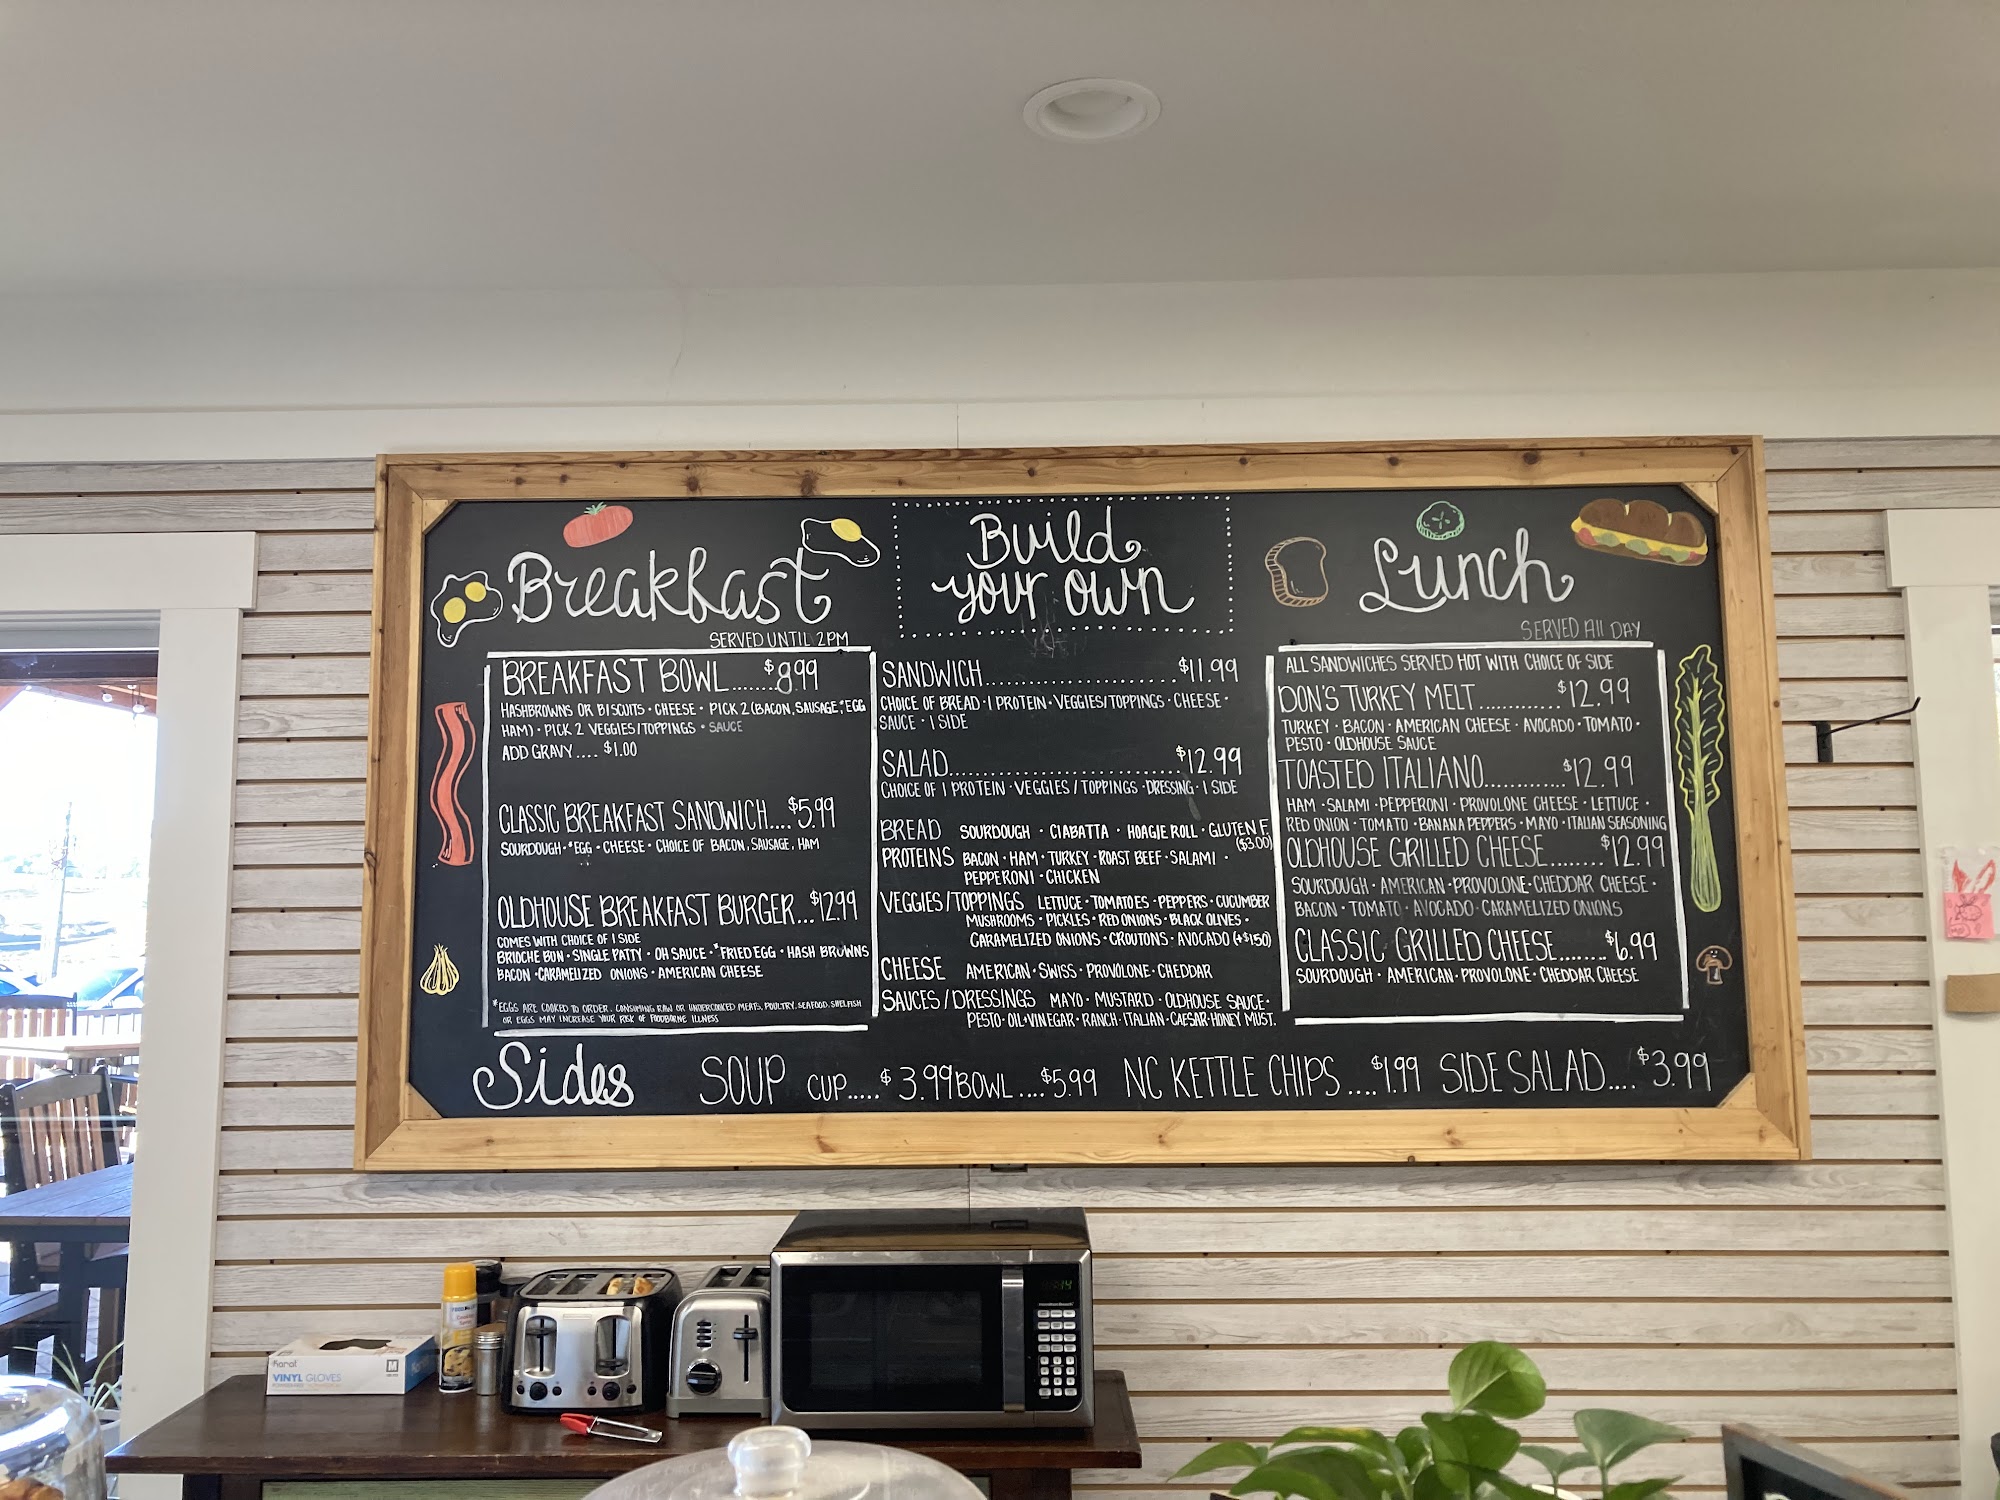 Breakfast
SERVED UNTIL 2PM
BREAKFAST BOWL.......$8.99
HASHBROWNS OR BISCUITS · CHEESE · PICK 2 (BACON, SAUSAGE, *EGG
HAM) · PICK 2 VEGGIES/TOPPINGS · SAUCE
ADD GRAVY.... $1.00
CLASSIC BREAKFAST SANDWICH....$5.99
SOURDOUGH · *EGG · CHEESE · CHOICE OF BACON, SAUSAGE, HAM
OLDHOUSE BREAKFAST BURGER...$12.99
COMES WITH CHOICE OF 1 SIDE
BRIOCHE BUN · SINGLE PATTY · OH SAUCE · *FRIED EGG · HASH BROWNS
BACON · CARAMELIZED ONIONS · AMERICAN CHEESE
*EGGS ARE COOKED TO ORDER. CONSUMING RAW OR UNDERCOOKED MEATS, POULTRY, SEAFOOD, SHELLFISH
OR EGGS MAY INCREASE YOUR RISK OF FOODBORNE ILLNESS
Build
your own
SANDWICH........................$11.99
CHOICE OF BREAD · 1 PROTEIN · VEGGIES/TOPPINGS · CHEESE ·
SAUCE · 1 SIDE
SALAD............................$12.99
CHOICE OF 1 PROTEIN · VEGGIES / TOPPINGS · DRESSING · 1 SIDE
BREAD SOURDOUGH · CIABATTA · HOAGIE ROLL · GLUTEN F.
($3.00)
PROTEINS BACON · HAM · TURKEY · ROAST BEEF · SALAMI ·
PEPPERONI · CHICKEN
VEGGIES/TOPPINGS LETTUCE · TOMATOES · PEPPERS · CUCUMBER
MUSHROOMS · PICKLES · RED ONIONS · BLACK OLIVES ·
CARAMELIZED ONIONS · CROUTONS · AVOCADO (+$1.50)
CHEESE AMERICAN · SWISS · PROVOLONE · CHEDDAR
SAUCES / DRESSINGS MAYO · MUSTARD · OLDHOUSE SAUCE ·
PESTO · OIL+VINEGAR · RANCH · ITALIAN · CAESAR · HONEY MUST.
Lunch
SERVED All DAY
ALL SANDWICHES SERVED HOT WITH CHOICE OF SIDE
DON'S TURKEY MELT.............$12.99
TURKEY · BACON · AMERICAN CHEESE · AVOCADO · TOMATO ·
PESTO · OLDHOUSE SAUCE
TOASTED ITALIANO.............$12.99
HAM · SALAMI · PEPPERONI · PROVOLONE CHEESE · LETTUCE ·
RED ONION · TOMATO · BANANA PEPPERS · MAYO · ITALIAN SEASONING
OLDHOUSE GRILLED CHEESE........$12.99
SOURDOUGH · AMERICAN · PROVOLONE · CHEDDAR CHEESE ·
BACON · TOMATO · AVOCADO · CARAMELIZED ONIONS
CLASSIC GRILLED CHEESE........$6.99
SOURDOUGH · AMERICAN · PROVOLONE · CHEDDAR CHEESE
Sides SOUP CUP.....$3.99 BOWL....$5.99 NC KETTLE CHIPS....$1.99 SIDE SALAD....$3.99
Karat
M
VINYL GLOVES